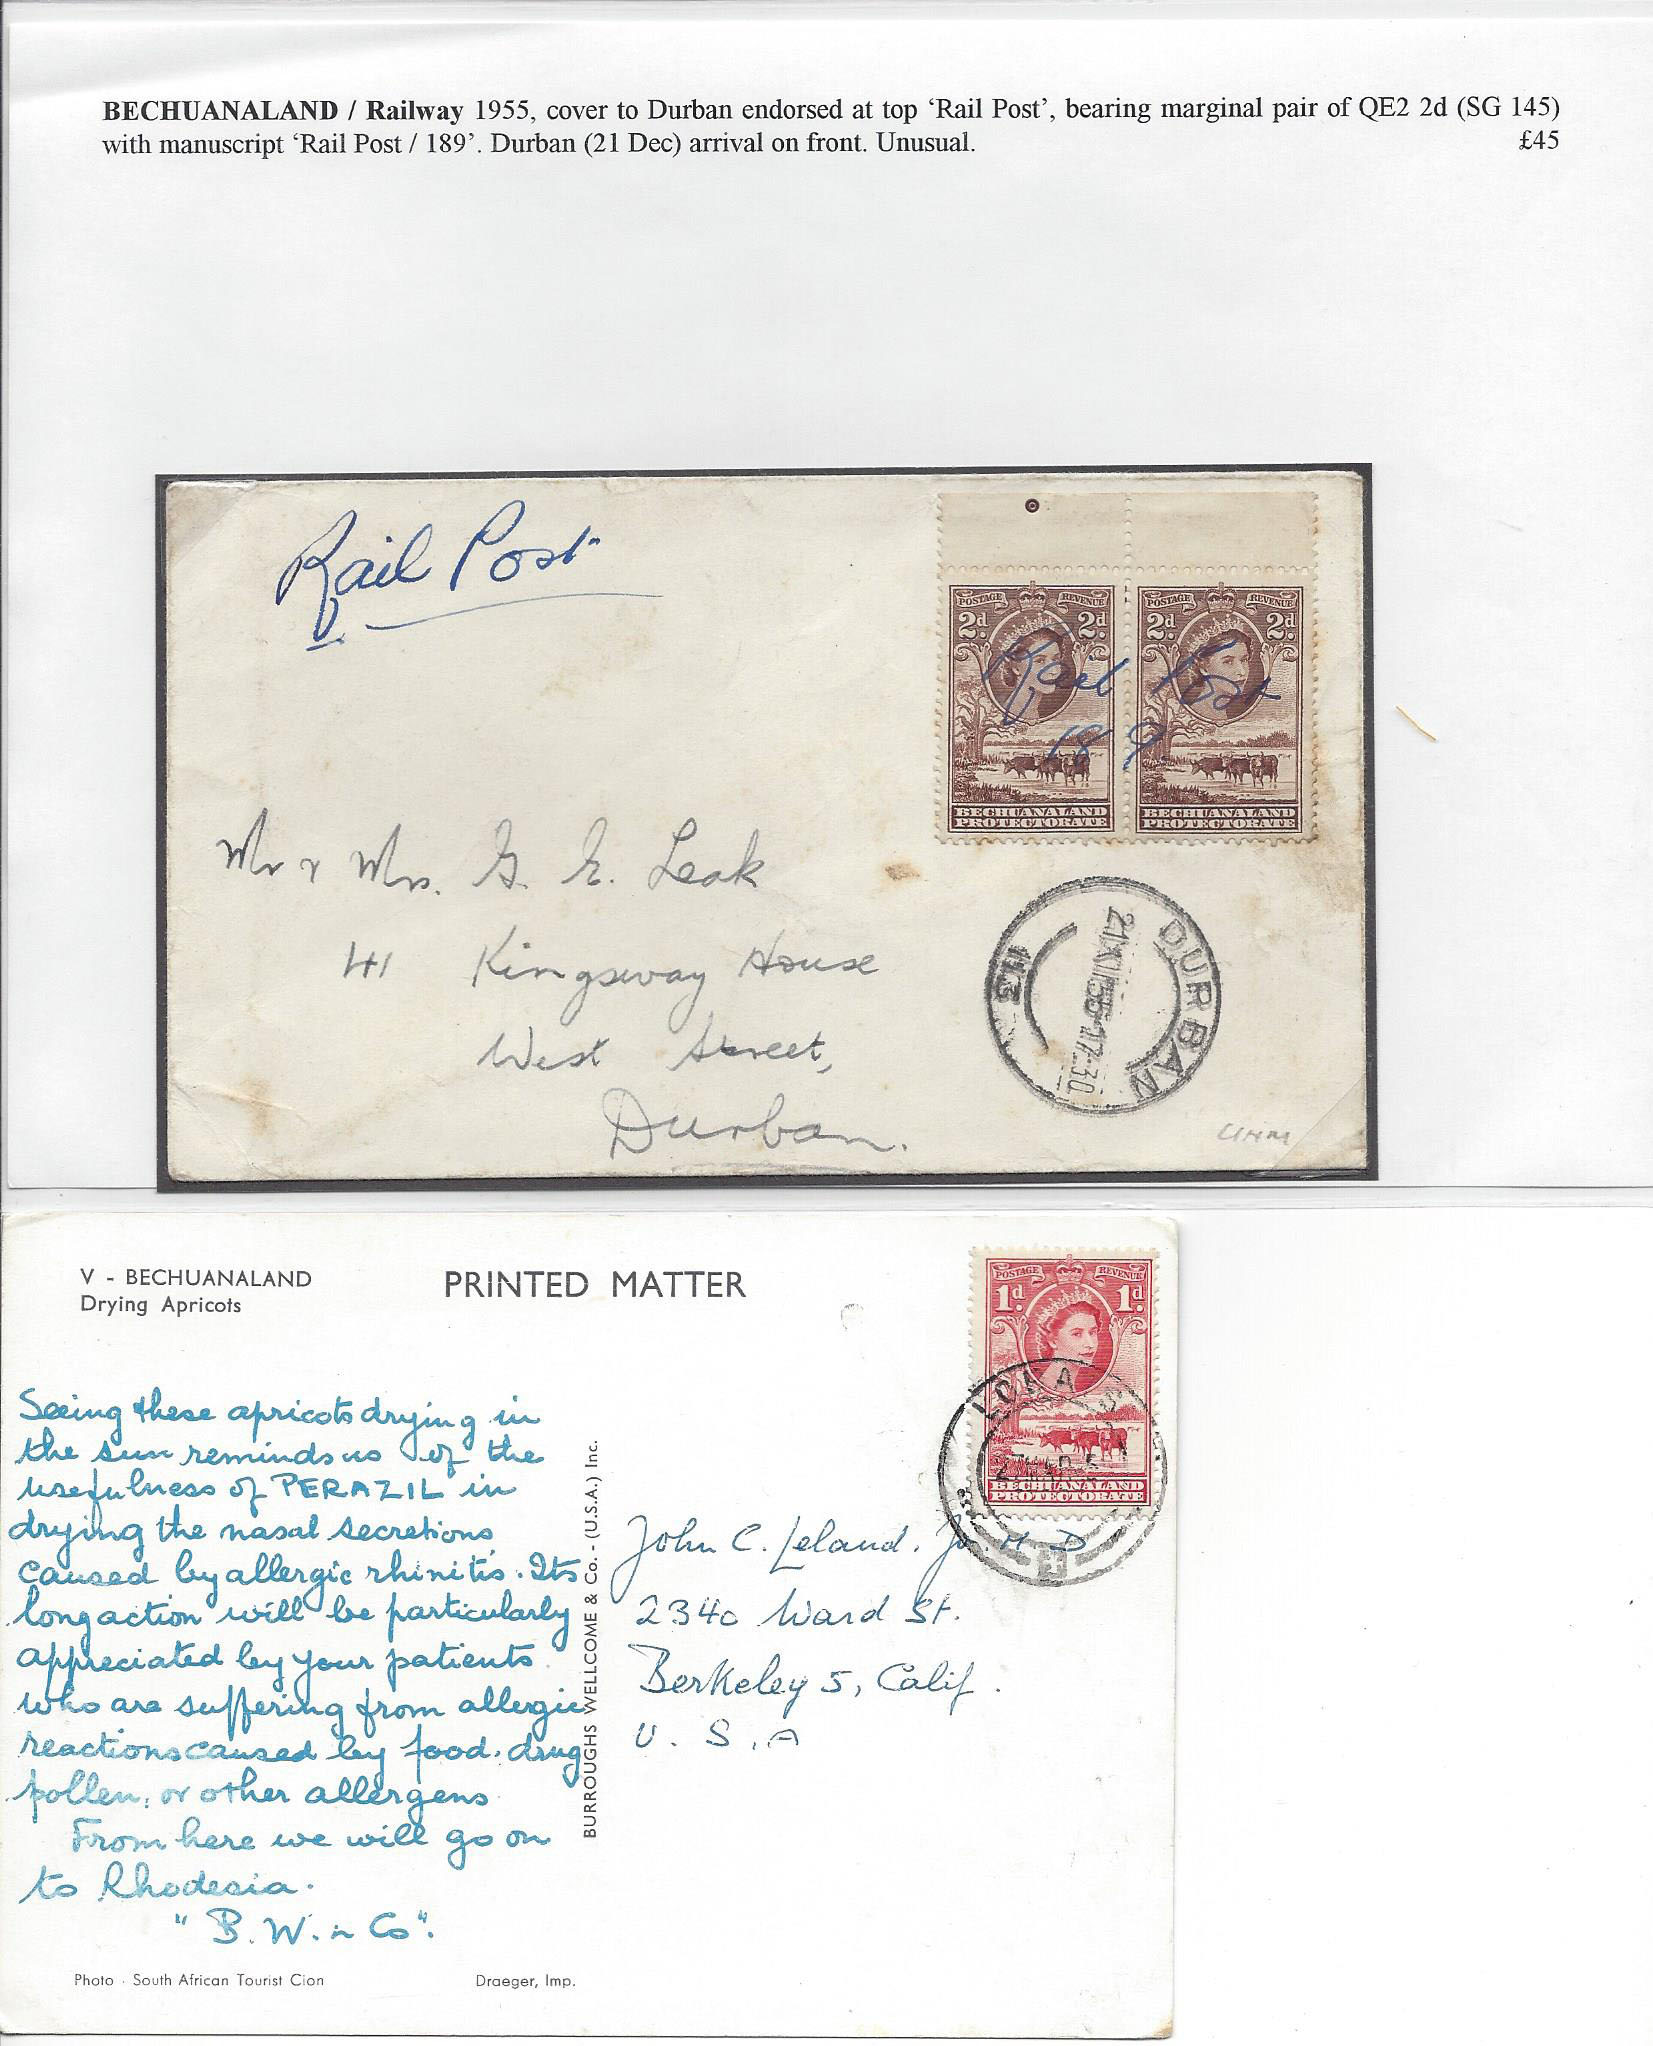 BECHUANALAND / Railway 1955, cover to Durban endorsed at top ‘Rail Post’, bearing marginal pair of QE2 2d (SG 145)
with manuscript ‘Rail Post / 189’. Durban (21 Dec) arrival on front. Unusual. £45
Rail Post
POSTAGE REVENUE POSTAGE REVENUE
2d. 2d. 2d. 2d.
Rail Post
189
BECHUANALAND BECHUANALAND
PROTECTORATE PROTECTORATE
Mr & Mrs. G. E. Leak
41 Kingsway House
West Street,
Durban.
DURBAN
21 XII 55-17·30
V - BECHUANALAND
Drying Apricots
PRINTED MATTER
POSTAGE REVENUE
1d. 1d.
BECHUANALAND
PROTECTORATE
Seeing these apricots drying in
the sun reminds us of the
usefulness of PERAZIL in
drying the nasal secretions
caused by allergic rhinitis. Its
long action will be particularly
appreciated by your patients
who are suffering from allergic
reactions caused by food, drug
pollen, or other allergens
From here we will go on
to Rhodesia.
"B.W. & Co".
BURROUGHS WELLCOME & Co. - (U.S.A.) Inc.
John C. Leland, Jr. M D
2340 Ward St.
Berkeley 5, Calif.
U. S. A
Photo · South African Tourist Cion
Draeger, Imp.